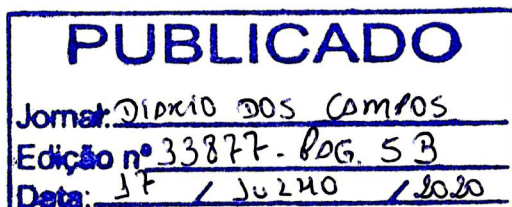 PUBLICADO
Jornal: DIÁRIO DOS CAMPOS
Edição nº 33877 - PÁG. 5B
Data: 17 / JULHO / 2020